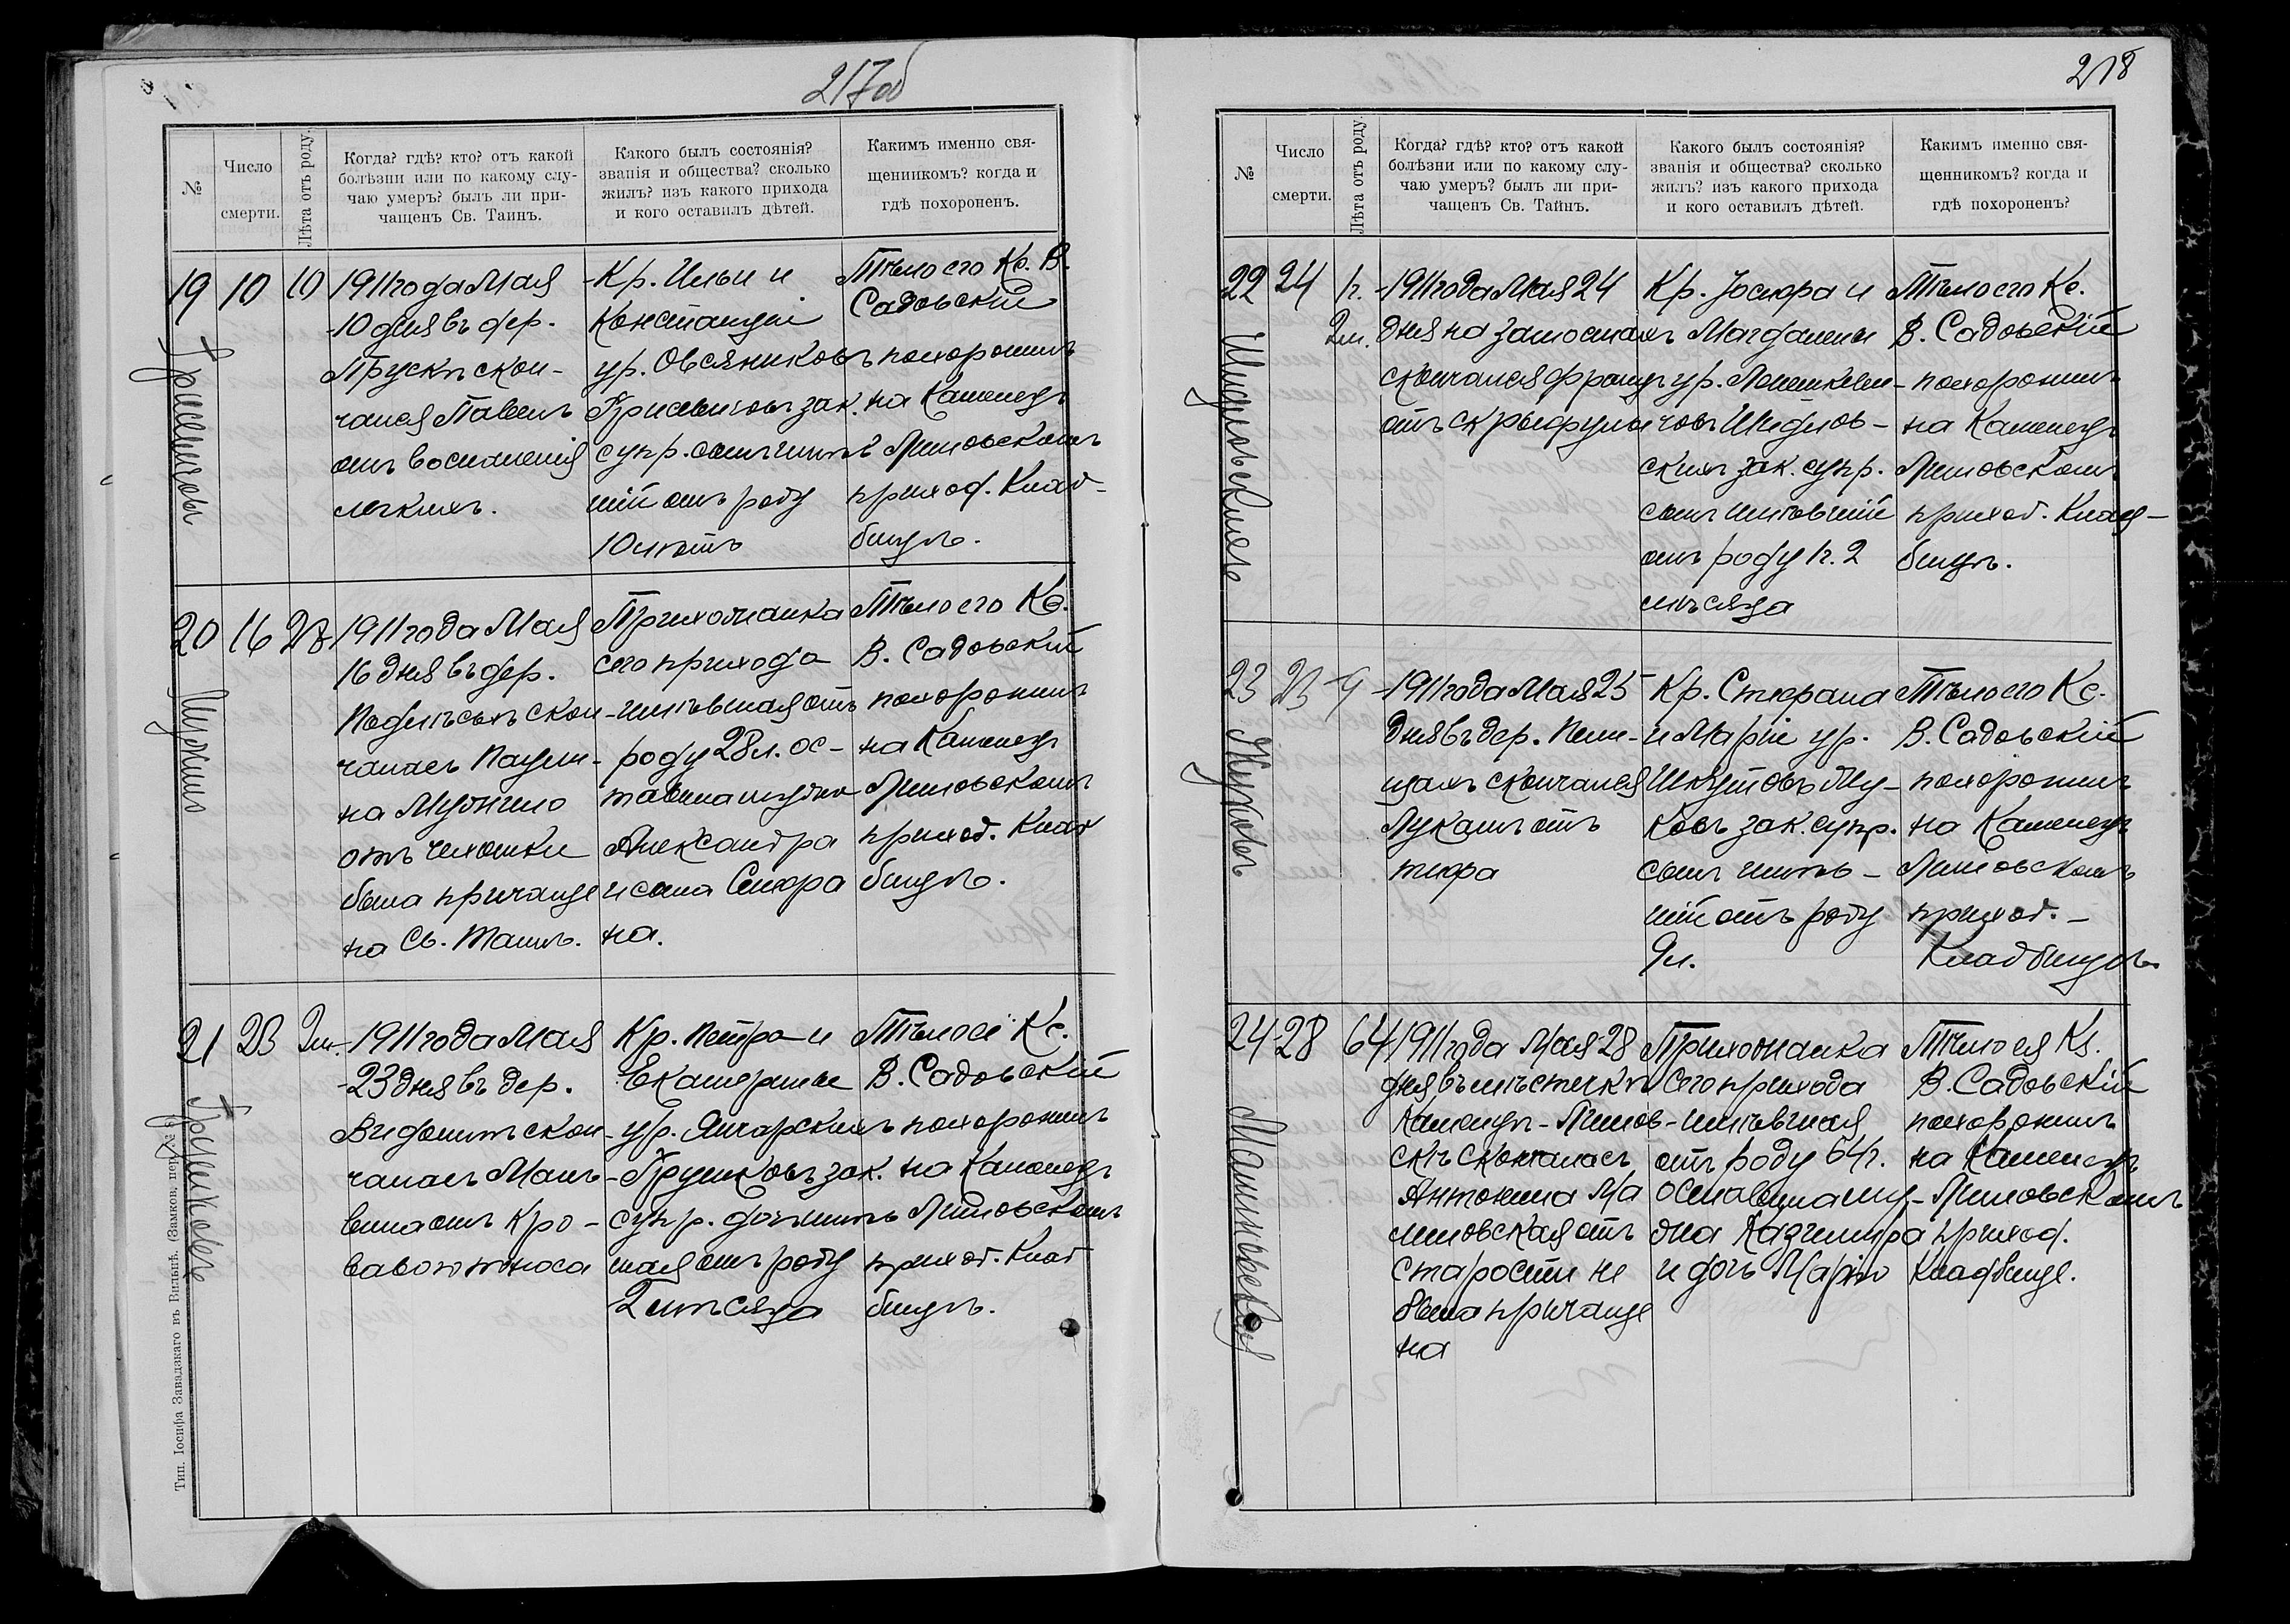 217об
№
Число
смерти.
Лѣта отъ роду.
Когда? гдѣ? кто? отъ какой
болѣзни или по какому слу-
чаю умеръ? былъ ли при-
чащенъ Св. Таинъ.
Какого былъ состоянія?
званія и общества? сколько
жилъ? изъ какого прихода
и кого оставилъ дѣтей.
Какимъ именно свя-
щенникомъ? когда и
гдѣ похороненъ.
19
10
10
1911 года Мая
10 дня въ дер.
Прускѣ скон-
чался Павелъ
отъ воспаленія
легкихъ.
Кр. Ильи и
Констанціи
ур. Овсяниковъ
зак.
супр. сынъ жив-
шій отъ роду
10 лѣтъ
Тѣло его Кс. В.
Садовскій
похоронилъ
на Каменецъ
Литовскомъ
приход. Клад-
бищѣ.
20
16
28
Муржино
1911 года Мая
16 дня въ дер.
Подлѣсьѣ скон-
чалась Паули-
на
отъ чахотки
была причаще
на Св. Таинъ.
Прихожанка
сего прихода
жившая отъ
роду 28 л. ос-
тавила мужа
Александра
и сына Стефа
на.
Тѣло его Кс.
В. Садовскій
похоронилъ
на Каменецъ
Литовскомъ
приход. Клад
бищѣ.
21
23
2 м.
Грушковъ
1911 года Мая
23 дня въ дер.
скон-
чалась Маль-
вина отъ кро-
ваваго поноса
Кр. Петра и
Екатерины
ур. Янчарскихъ
Грушковъ зак.
супр. дочь жив
шая отъ роду
2 мѣсяца
Тѣло ея Кс.
В. Садовскій
похоронилъ
на Каменецъ
Литовскомъ
приход. Клад
бищѣ.
Тип. Іосифа Завадзкаго въ Вильнѣ. (Замков. пер. № 8)
218
№
Число
смерти.
Лѣта отъ роду.
Когда? гдѣ? кто? отъ какой
болѣзни или по какому слу-
чаю умеръ? былъ ли при-
чащенъ Св. Таинъ.
Какого былъ состоянія?
званія и общества? сколько
жилъ? изъ какого прихода
и кого оставилъ дѣтей.
Какимъ именно свя-
щенникомъ? когда и
гдѣ похороненъ?
22
24
1 г.
2 м.
Шидловскихъ
1911 года Мая 24
дня на Замостахъ
скончался Францъ
отъ скрофулы
Кр. Іосифа и
Магдалены
ур. Лешкеви-
човъ Шидлов-
скихъ зак. супр.
сынъ жившій
отъ роду 1 г. 2
мѣсяца
Тѣло его Кс.
В. Садовскій
похоронилъ
на Каменецъ
Литовскомъ
приход. Клад-
бищѣ.
23
25
9
Жуковъ
1911 года Мая 25
дня въ дер. Пели-
щахъ скончался
Лукашъ отъ
тифа
Кр. Стефана
и Маріи ур.
Шкутовъ Жу-
ковъ зак. супр.
сынъ жив-
шій отъ роду
9 л.
Тѣло его Кс.
В. Садовскій
похоронилъ
на Каменецъ
Литовскомъ
приход.
Кладбищѣ.
24
28
64
Малиновская
1911 года Мая 28
дня въ мѣстечкѣ
Каменцѣ-Литов-
скѣ скончалась
Антонина Ма
линовская отъ
старости не
была причаще
на
Прихожанка
сего прихода
жившая
отъ роду 64 г.
оставила му-
жа Казимира
и дочь Марію
Тѣло ея Кс.
В. Садовскій
похоронилъ
на Каменецъ
Литовскомъ
приход.
Кладбище.